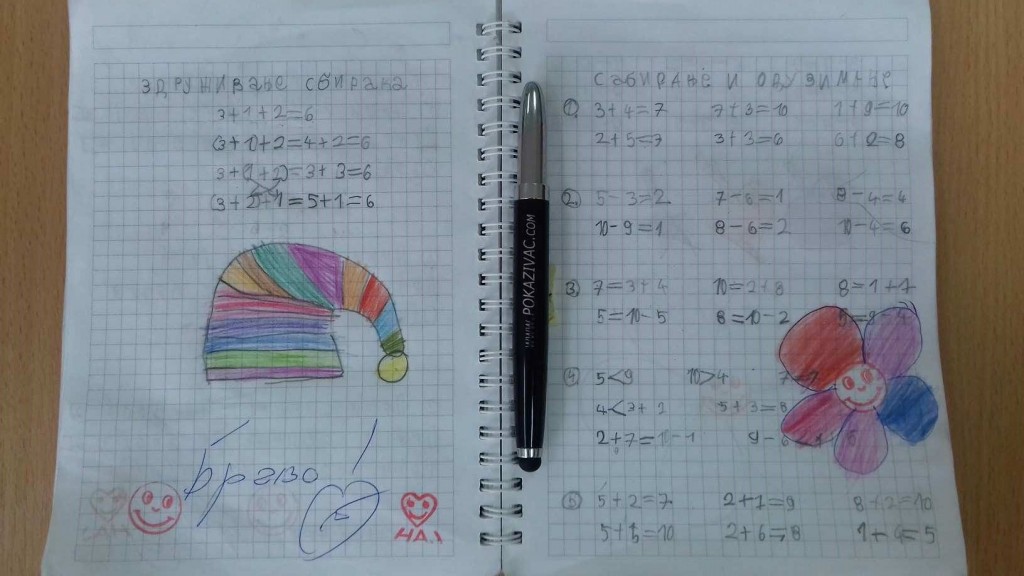 ЗДРУЖИВАЊЕ СБИРАКА
3+1+2=6
(3+1)+2=4+2=6
3+(1+2)=3+3=6
(3+2)+1=5+1=6
Браво!
НАЈ
САБИРАЊЕ И ОДУЗИМАЊЕ
1. 3+4=7 7+3=10 1+9=10
2+5=7 3+3=6 6+2=8
2. 5-3=2 7-6=1 8-4=4
10-9=1 8-6=2 10-4=6
3. 7=3+4 10=2+8 8=1+7
5=10-5 8=10-2
4. 5<9 10>4
4<7+2 5+3=8
2+7=10-1
5. 5+2=7 8+2=10
5+5=10 2+6=8
www.POKAZIVAC.COM